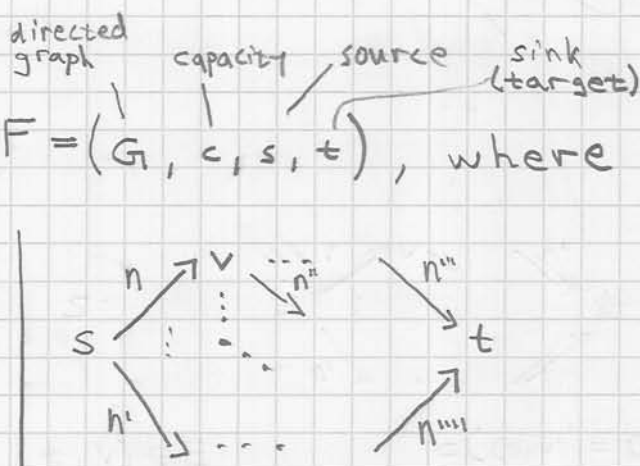 directed
graph capacity source sink
(target)
F = (G, c, s, t), where
n v n'' n'''
s t
n' n''''